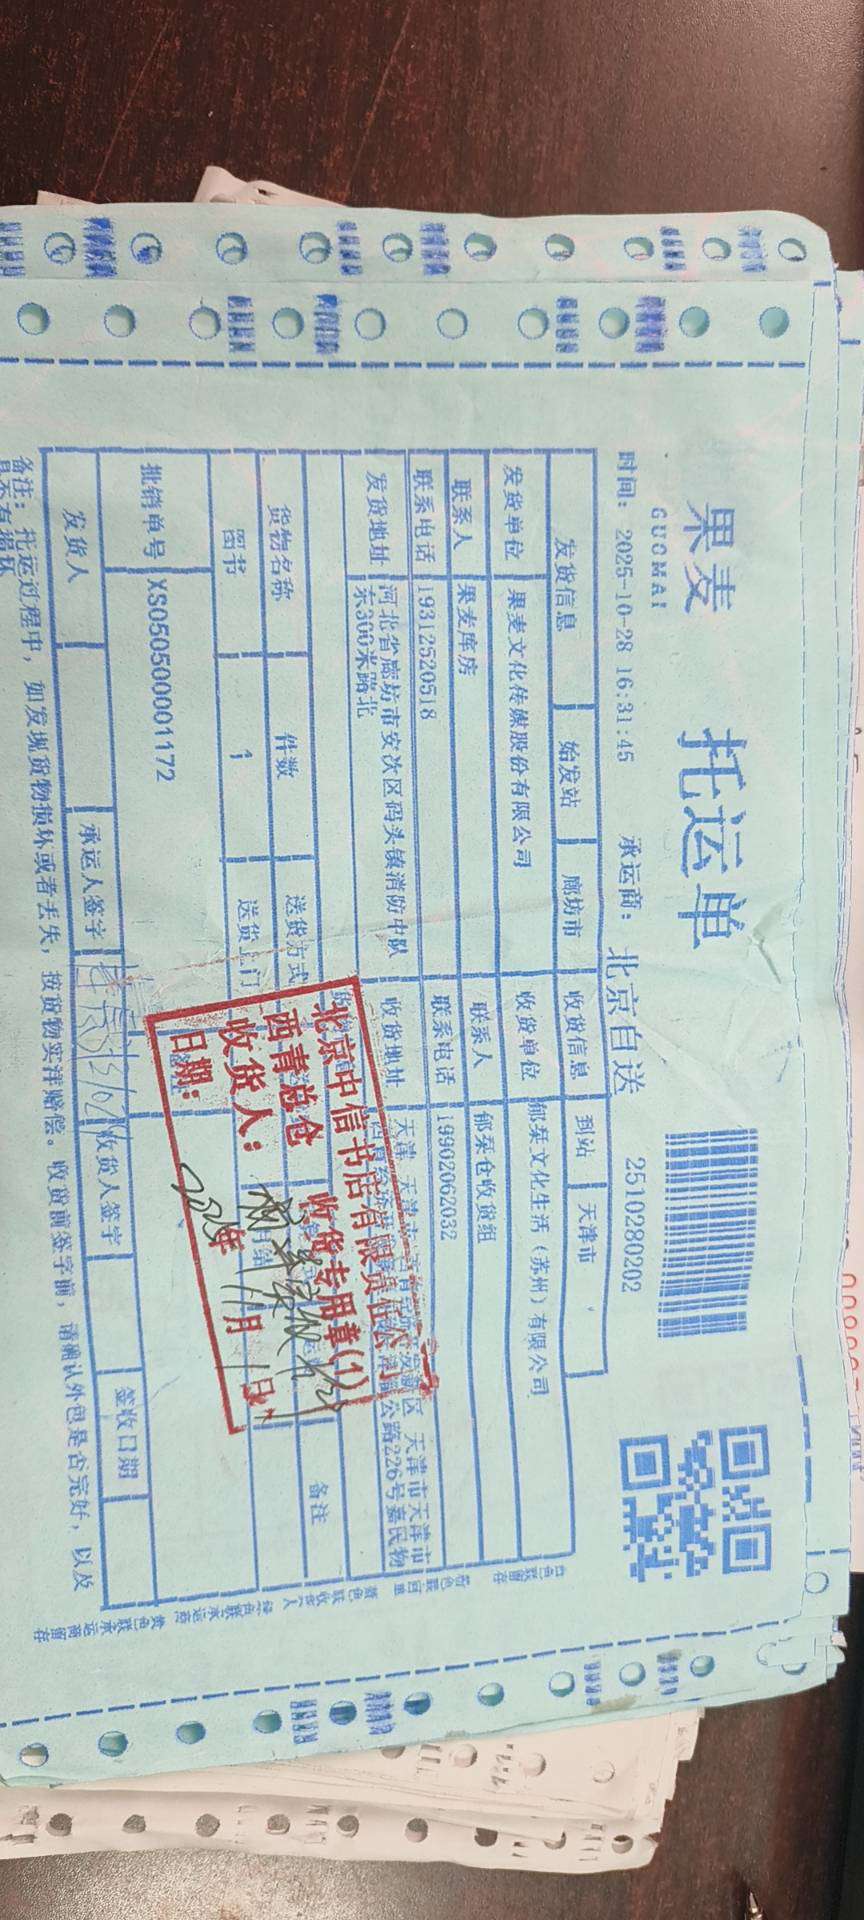 果麦
GUOMAI
托运单
2510280202
时间: 2025-10-28 16:31:45
承运商: 北京自送
发货信息 始发站 廊坊市 收货信息 到站 天津市
发货单位 果麦文化传媒股份有限公司 收货单位 郁栞文化生活（苏州）有限公司
联系人 果麦库房 联系人 郁栞仓收货组
联系电话 19312520518 联系电话 19902062032
发货地址 河北省廊坊市安次区码头镇消防中队东300米路北 收货地址 天津 天津市 西青 区 天津市天津市 公路226号嘉民物
货物名称 件数 送货方式 备注
图书 1 送货上门
批销单号 XS050500001172
发货人 承运人签字 收货人签字 签收日期
备注: 托运过程中, 如发现货物损坏或者丢失, 按货物实洋赔偿。收货前签字前, 请确认外包是否完好, 以及
是否有损坏
北京中信书店有限责任公司
西青总仓 收货专用章(1)
收货人:
日期: 2025年11月1日